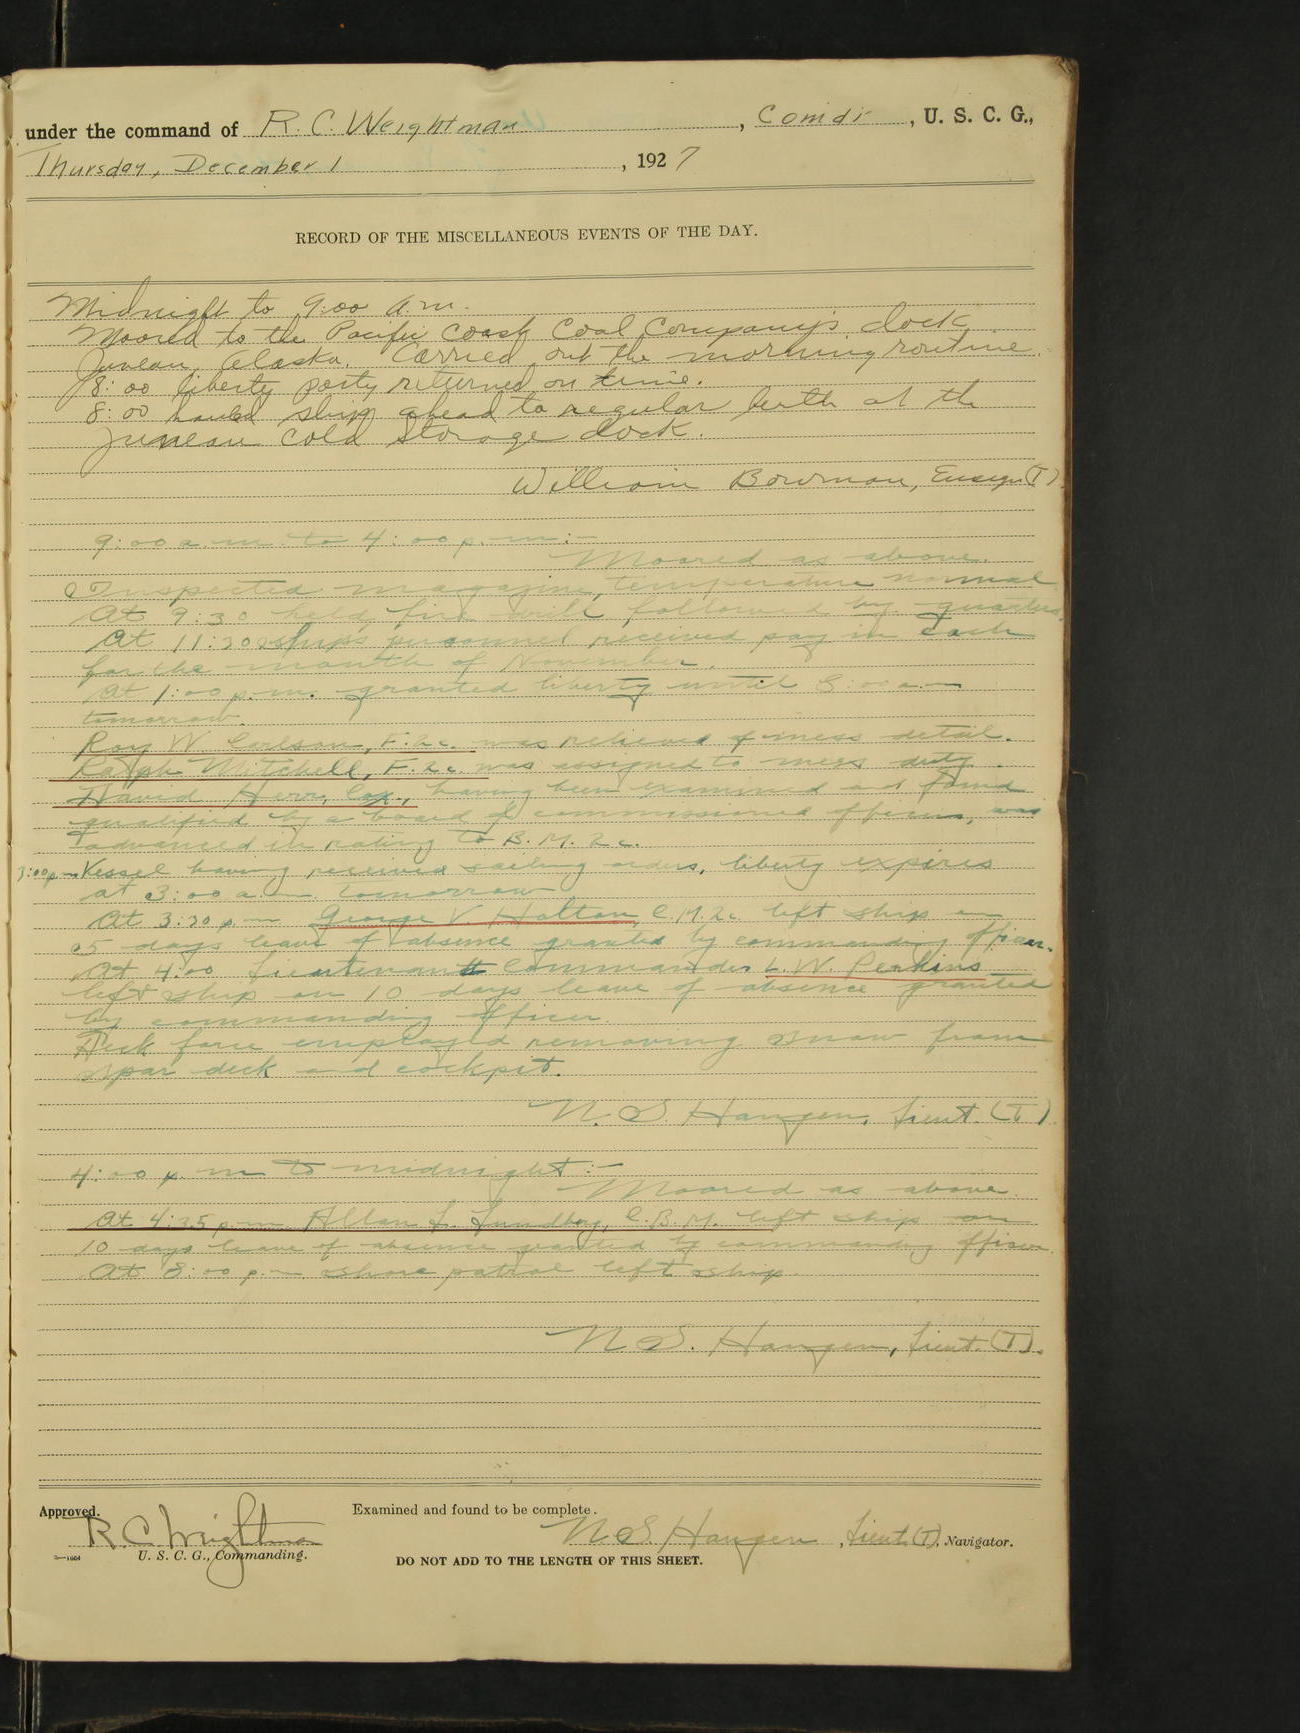 under the command of R. C. Weightman, Comdr, U. S. C. G.,
Thursday, December 1, 1927
RECORD OF THE MISCELLANEOUS EVENTS OF THE DAY.
Midnight to 9:00 a.m.
Moored to the Pacific Coast Coal Company's dock,
Juneau, Alaska. Carried out the morning routine.
8:00 liberty party returned on time.
8:00 hauled ship ahead to regular berth at the
Juneau Cold Storage dock.
William Bowman, Ensign (T)
9:00 a.m. to 4:00 p.m.:-
Moored as above.
Inspected magazine, temperature normal.
At 9:30 held fire drill followed by quarters.
At 11:30 ship's personnel received pay in cash
for the month of November.
At 1:00 p.m. granted liberty until 8:00 a.m.
tomorrow.
Roy W. Carlson, F.2c. was relieved of mess detail.
Ralph Mitchell, F.2c. was assigned to mess duty.
David Herr, Cox., having been examined and found
qualified by a board of commissioned officers, was
advanced in rating to B.M.2c.
3:00 p.m. Vessel having received sailing orders, liberty expires
at 3:00 a.m. tomorrow
At 3:30 p.m. George V. Holton, C.M.2c. left ship on
25 days leave of absence granted by commanding officer.
At 4:00 Lieutenant Commander L. W. Perkins
left ship on 10 days leave of absence granted
by commanding officer.
Deck force employed removing snow from
spar deck and cockpit.
N. S. Haugen, Lieut. (T)
4:00 p.m. to midnight:-
Moored as above.
At 4:35 p.m. Allan L. Lundberg, C.B.M. left ship on
10 days leave of absence granted by commanding officer.
At 8:00 p.m. shore patrol left ship.
N. S. Haugen, Lieut. (T).
Approved. Examined and found to be complete.
R C Weightman N. S. Haugen, Lieut. (T), Navigator.
2—1664 U. S. C. G., Commanding.
DO NOT ADD TO THE LENGTH OF THIS SHEET.